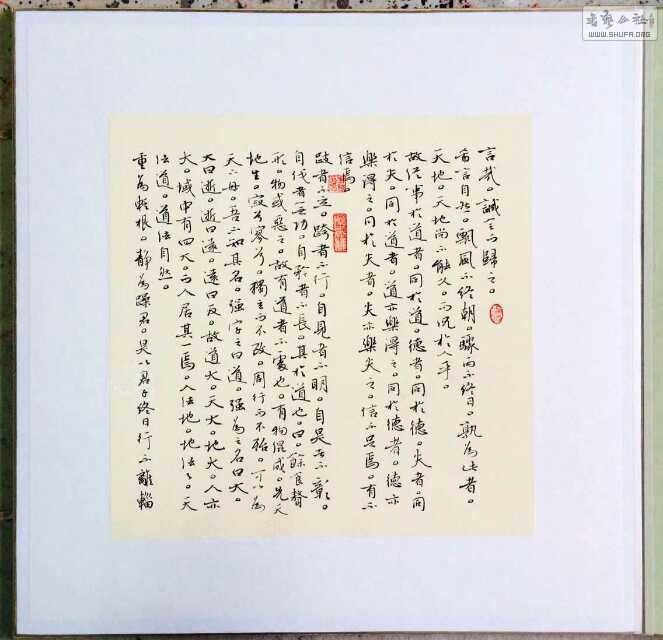 言哉。誠全而歸之。
希言自然。飄風不終朝。驟雨不終日。孰為此者。
天地。天地尚不能久。而況於人乎。
故從事於道者。同於道。德者。同於德。失者。同
於失。同於道者。道亦樂得之。同於德者。德亦
樂得之。同於失者。失亦樂失之。信不足焉。有不
信焉。
跂者不立。跨者不行。自見者不明。自是者不彰。
自伐者無功。自矜者不長。其於道也。曰。餘食贅
形。物或惡之。故有道者不處也。有物混成。先天
地生。寂兮寥兮。獨立而不改。周行而不殆。可以為
天下母。吾不知其名。強字之曰道。強為之名曰大。
大曰逝。逝曰遠。遠曰反。故道大。天大。地大。人亦
大。域中有四大。而人居其一焉。人法地。地法天。天
法道。道法自然。
重為輕根。靜為躁君。是以君子終日行不離輜
书艺公社
WWW.SHUFA.ORG